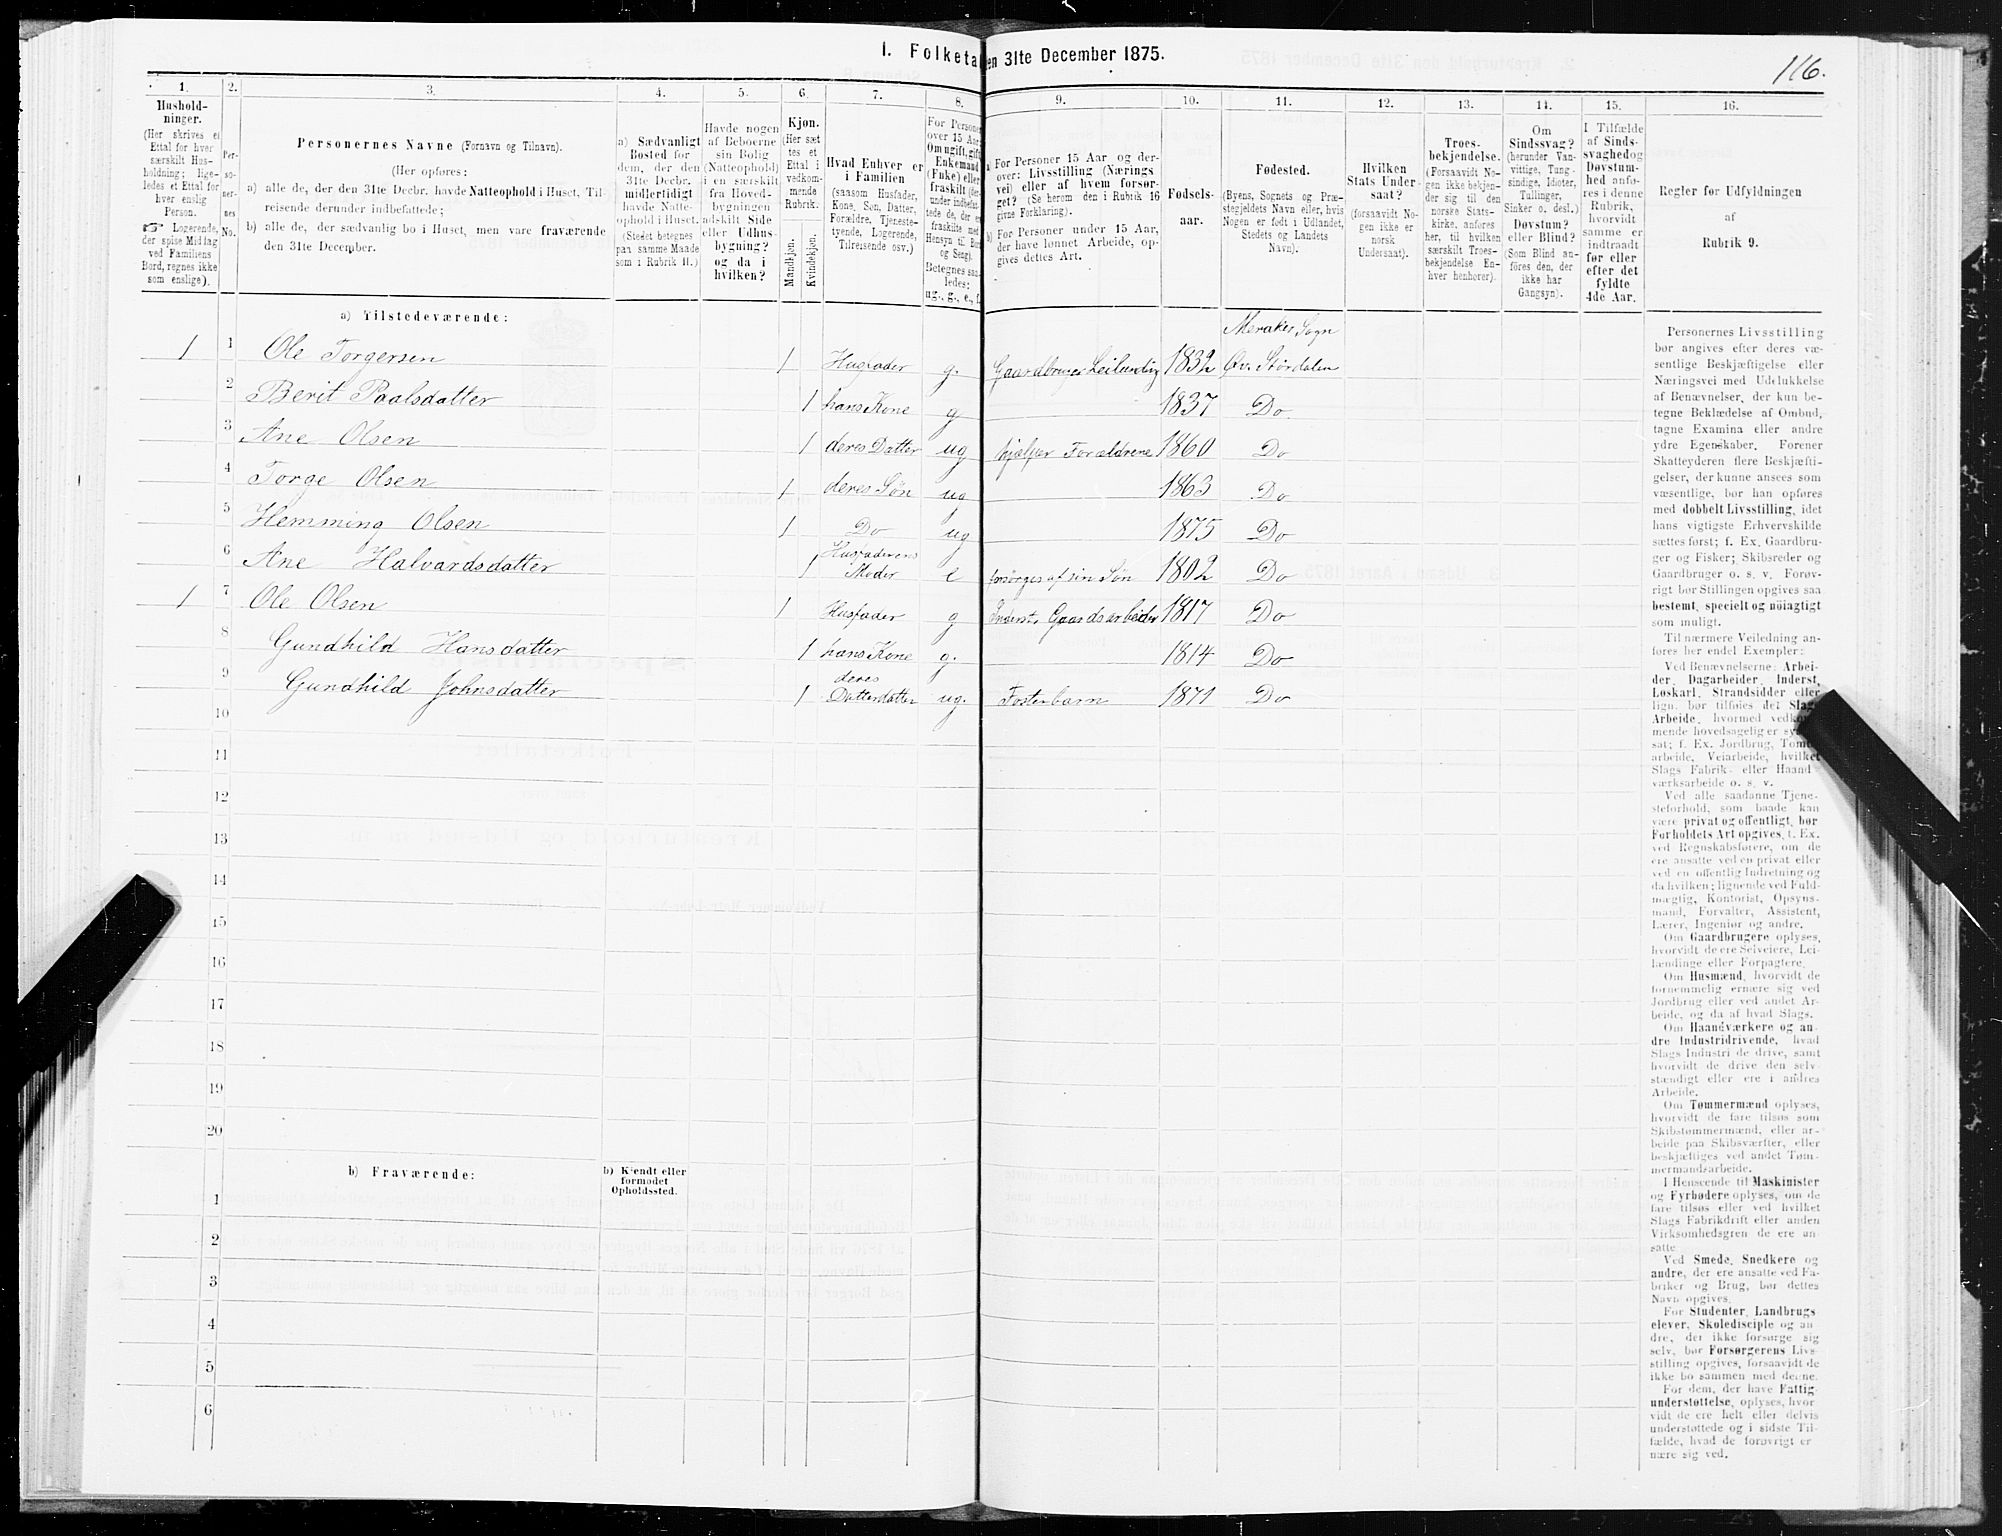 1. Folketal den 31te December 1875.
116.
1.
Hushold-
ninger.
(Her skrives et
Ettal for hver
særskilt Hus-
holdning; lige-
ledes et Ettal for
hver enslig
Person.
Logerende,
der spise Middag
ved Familiens
Bord, regnes ikke
som enslige).
2.
Per-
so-
ner-
nes
No.
3.
Personernes Navne (Fornavn og Tilnavn).
(Her opføres:
a) alle de, der den 31te Decbr. havde Natteophold i Huset, Til-
reisende derunder indbefattede;
b) alle de, der sædvanlig bo i Huset, men vare fraværende
den 31te December.
4.
a) Sædvanligt
Bosted for
dem, der den
31te Decbr.
midlertidigt
havde Natte-
ophold i Huset.
(Stedet betegnes
paa samme Maade
som i Rubrik 11.)
5.
Havde nogen
af Beboerne
sin Bolig
(Natteophold)
i en særskilt
fra Hoved-
bygningen
adskilt Side
eller Udhus-
bygning?
og da i
hvilken?
6.
Kjøn.
(Her sæt-
tes et
Ettal i
vedkom-
mende
Rubrik.
Mandkjøn.
Kvindekjøn.
7.
Hvad Enhver er
i Familien
(saasom Husfader,
Kone, Søn, Datter,
Forældre, Tjeneste-
tyende, Logerende,
Tilreisende osv.)
8.
For Personer
over 15 Aar:
Om ugift, gift,
Enkemand
(Enke) eller
fraskilt
Betegnes saa-
ledes:
ug., g., e., f.
9.
a) For Personer 15 Aar og der-
over: Livsstilling (Nærings-
vei) eller af hvem forsør-
get? (Se herom den i Rubrik 16
givne Forklaring).
b) For Personer under 15 Aar,
der have lønnet Arbeide, op-
gives dettes Art.
10.
Fødsels-
aar.
11.
Fødested.
(Byens, Sognets og Præ-
stegjeldets Navn eller, hvis
Nogen er født i Udlandet,
Stedets og Landets
Navn).
12.
Hvilken
Stats Under-
saat?
(forsaavidt No-
gen ikke er
norsk
Undersaat).
13.
Troes-
bekjendelse.
(Forsaavidt No-
gen ikke bekjen-
der sig til den
norske Stats-
kirke, anføres
her, til hvilken
særskilt Troes-
bekjendelse En-
hver henhører).
14.
Om
Sindssvag?
(herunder Van-
vittige, Tung-
sindige, Idioter,
Tullinger,
Sinker o. desl.)
Døvstum?
eller Blind?
(Som Blind an-
føres den, der
ikke har
Gangsyn).
15.
I Tilfælde
af Sinds-
svaghed og
Døvstum-
hed anfø-
res i denne
Rubrik,
hvorvidt
samme er
indtraadt
før eller
efter det
fyldte
4de Aar.
16.
Regler før Udfyldningen
af
Rubrik 9.
a) Tilstedeværende:
Merakes Sogn
1 1 Ole Torgersen 1 Husfader g. Gaardbruger Leilænding 1832 Øv. Størdalen
2 Berit Paalsdatter 1 hans Kone g 1837 Do
3 Ane Olsen 1 deres Datter ug hjælper Forældrene 1860 Do
4 Torge Olsen 1 deres Søn ug 1863 Do
5 Hemming Olsen 1 Do ug 1875 Do
6 Ane Halvardsdatter 1 Husfaderens Moder e forsørges af sin Søn 1802 Do
1 7 Ole Olsen 1 Husfader g Inderst, Gaardsarbeider 1817 Do
8 Gundhild Hansdatter 1 hans Kone g. 1814 Do
9 Gundhild Johnsdatter 1 deres Datterdatter ug. Fosterbarn 1871 Do
10
11
12
13
14
15
16
17
18
19
20
b) Fraværende:
b) Kjendt eller
formodet
Opholdssted.
1
2
3
4
5
6
Personernes Livsstilling
bør angives efter deres væ-
sentlige Beskjæftigelse eller
Næringsvei med Udelukkelse
af Benævnelser, der kun be-
tegne Beklædelse af Ombud,
tagne Examina eller andre
ydre Egenskaber. Forener
Skatteyderen flere Beskjæfti-
gelser, der kunne ansees som
væsentlige, bør han opføres
med dobbelt Livsstilling, idet
hans vigtigste Erhvervskilde
sættes først; f. Ex. Gaardbru-
ger og Fisker; Skibsreder og
Gaardbruger o. s. v. Forøv-
rigt bør Stillingen opgives saa
bestemt, specielt og nøiagtigt
som muligt.
Til nærmere Veiledning an-
føres her endel Exempler:
Ved Benævnelserne: Arbei-
der, Dagarbeider, Inderst,
Løskarl, Strandsidder eller
lign. bør tilføies det Slags
Arbeide, hvormed vedkom-
mende hovedsagelig er syssel-
sat; f. Ex. Jordbrug, Tomte-
arbeide, Veiarbeide, hvilket
Slags Fabrik- eller Haand-
værksarbeide o. s. v.
Ved alle saadanne Tjene-
steforhold, som baade kan
være privat og offentligt, bør
Forholdets Art opgives, f. Ex.
ved Regnskabsførere, om de
ere ansatte ved en privat eller
ved en offentlig Indretning og
da hvilken; lignende ved Fuld-
mægtig, Kontorist, Opsyns-
mand, Forvalter, Assistent,
Lærer, Ingeniør og andre.
Om Gaardbrugere oplyses,
hvorvidt de ere Selveiere, Lei-
lændinge eller Forpagtere.
Om Husmænd, hvorvidt de
fornemmelig ernære sig ved
Jordbrug eller ved andet Ar-
beide, og da af hvad Slags.
Om Haandværkere og an-
dre Industridrivende, hvad
Slags Industri de drive, samt
hvorvidt de drive den selv-
stændigt eller ere i andres
Arbeide.
Om Tømmermænd oplyses,
hvorvidt de fare tilsøs som
Skibstømmermænd, eller ar-
beide paa Skibsværfter, eller
beskjæftiges ved andet Tøm-
mermandsarbeide.
I Henseende til Maskinister
og Fyrbødere oplyses, om de
fare tilsøs eller ved hvilket
Slags Fabrikdrift eller anden
Virksomhedsgren de ere an-
satte.
Ved Smede, Snedkere og
andre, der ere ansatte ved Fa-
briker og Brug, bør dettes
Navn opgives.
For Studenter, Landbrugs-
elever, Skoledisciple og an-
dre, der ikke forsørge sig
selv, bør Forsørgerens Livs-
stilling opgives, forsaavidt de
ikke bo sammen med denne.
For dem, der have Fattig-
understøttelse, oplyses, hvor-
vidt de ere helt eller delvis
understøttede og i sidste Til-
fælde, hvad de forøvrigt er-
nære sig ved.